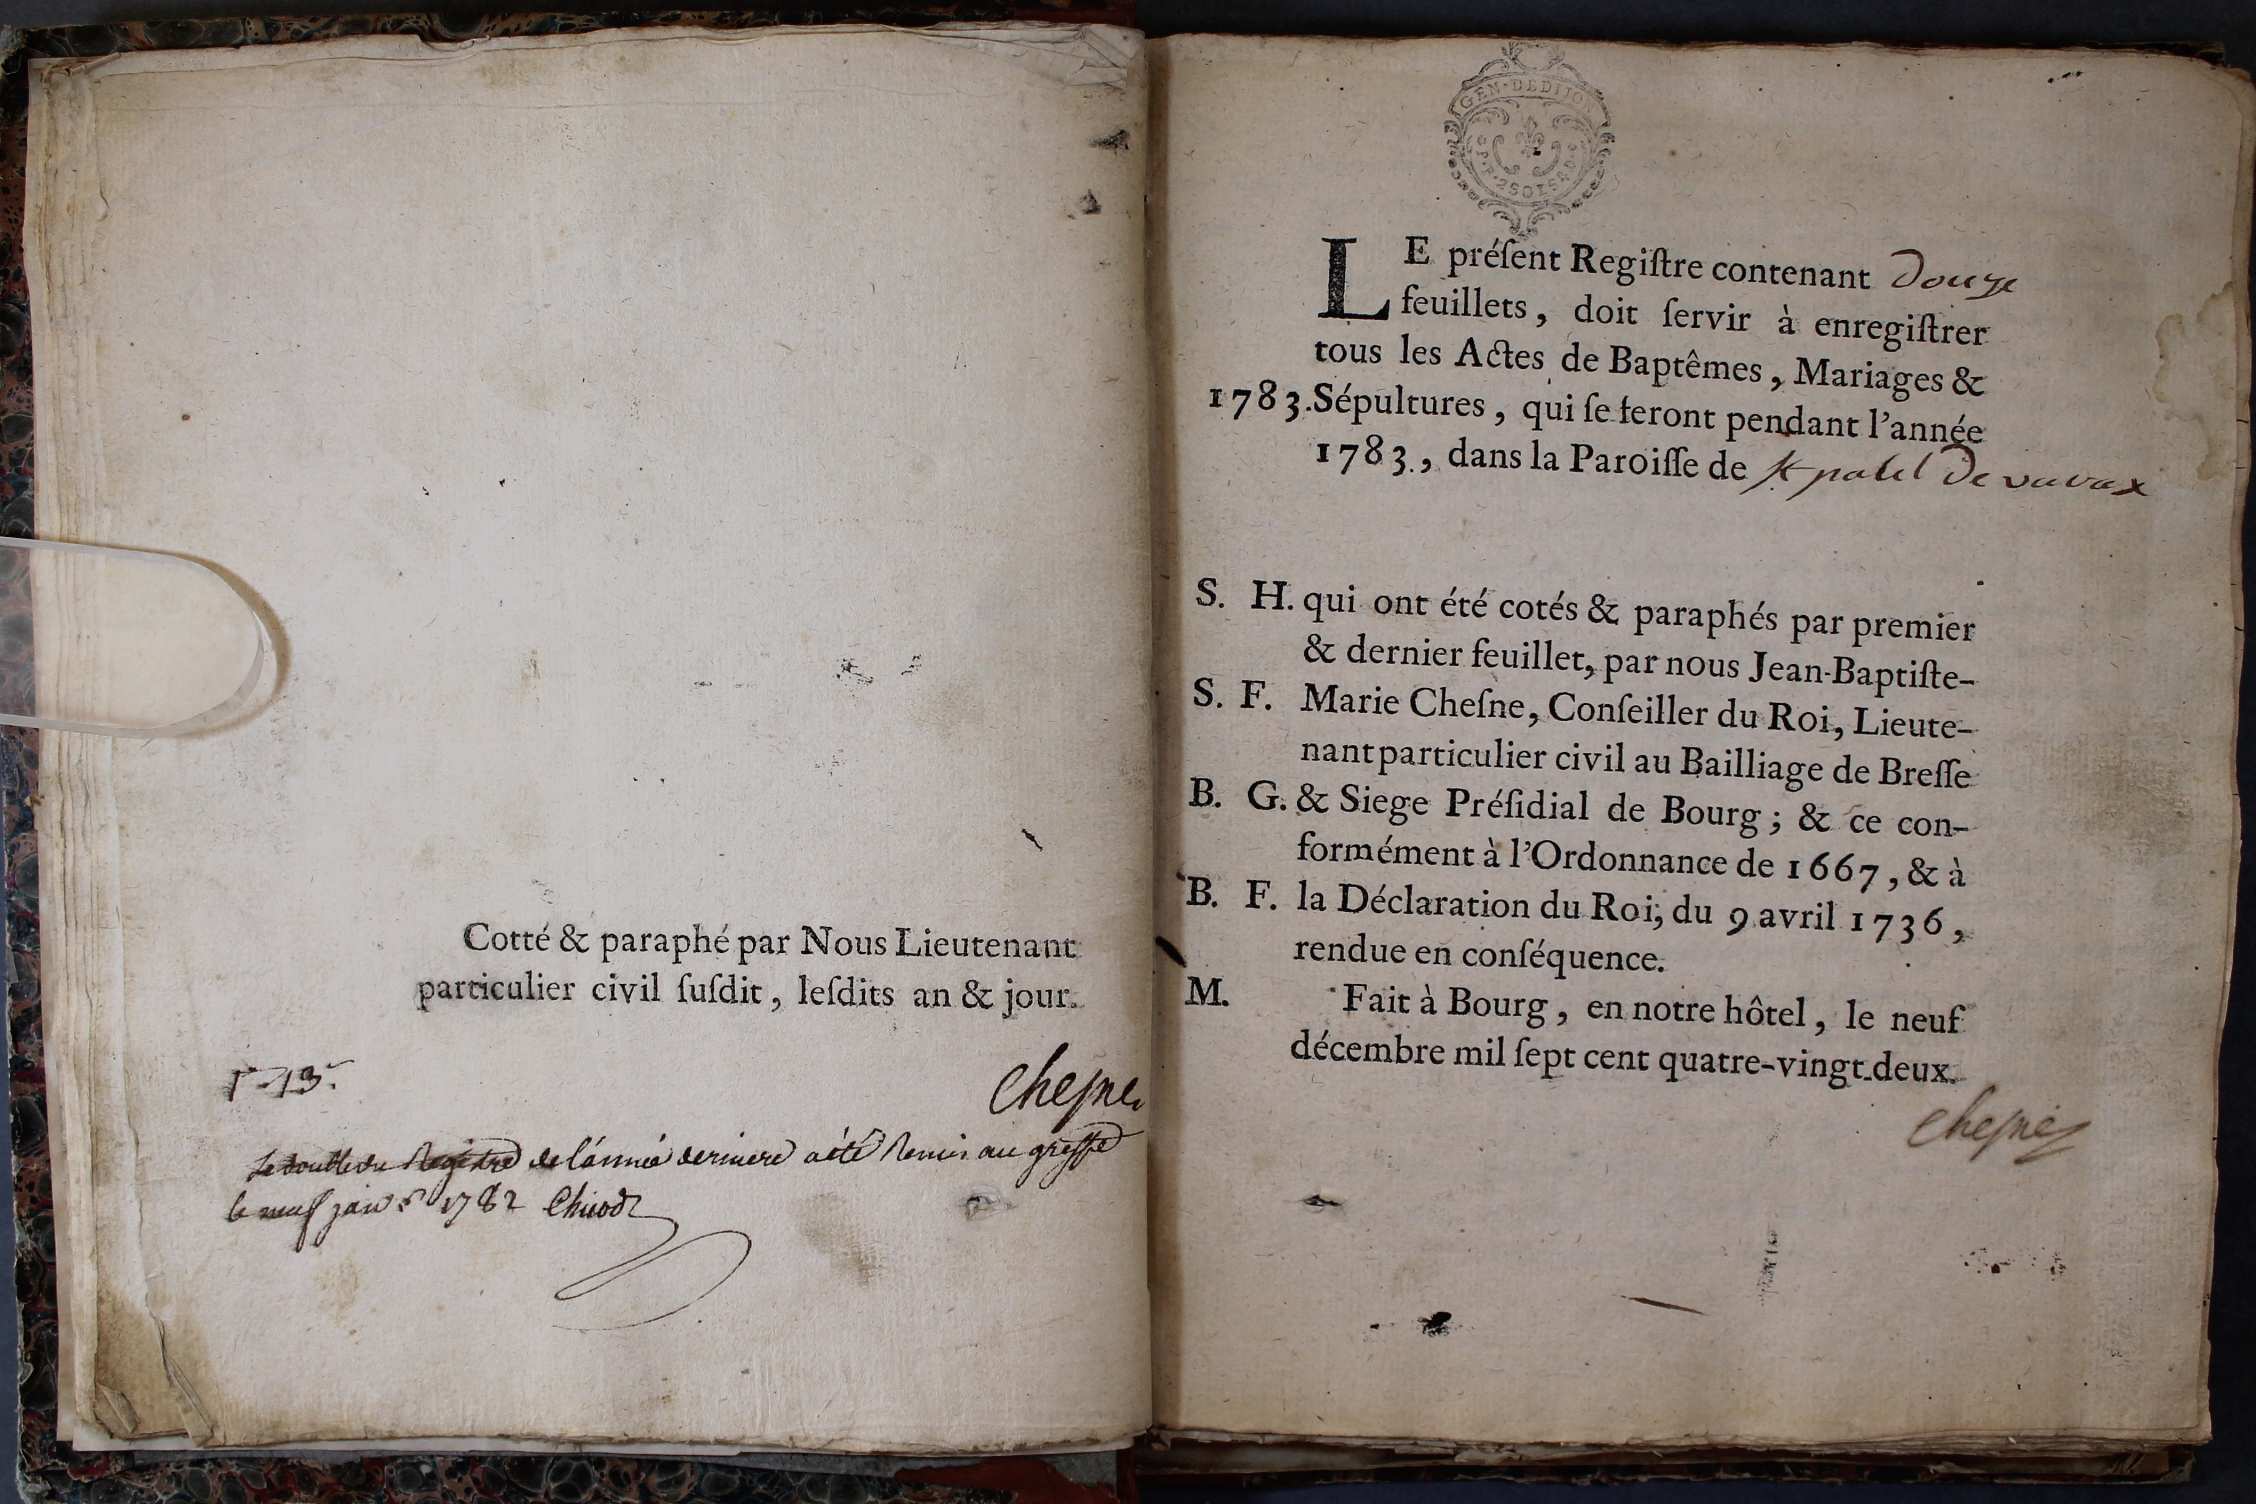 Cotté & paraphé par Nous Lieutenant
particulier civil ſuſdit, leſdits an & jour.
Cheſne
Le double du Regiſtre de l'année derniere a été Remis au greffe
le neuf janv 1782
GEN·DEDIJON
LE préſent Regiſtre contenant Douze
feuillets, doit ſervir à enregiſtrer
tous les Actes de Baptêmes, Mariages &
1783. Sépultures, qui ſe feront pendant l'année
1783, dans la Paroiſſe de St
S. H. qui ont été cotés & paraphés par premier
& dernier feuillet, par nous Jean-Baptiſte-
S. F. Marie Cheſne, Conſeiller du Roi, Lieute-
nant particulier civil au Bailliage de Breſſe
B. G. & Siege Préſidial de Bourg; & ce con-
formément à l'Ordonnance de 1667, & à
B. F. la Déclaration du Roi, du 9 avril 1736,
rendue en conſéquence.
M. Fait à Bourg, en notre hôtel, le neuf
décembre mil ſept cent quatre-vingt-deux.
Cheſne